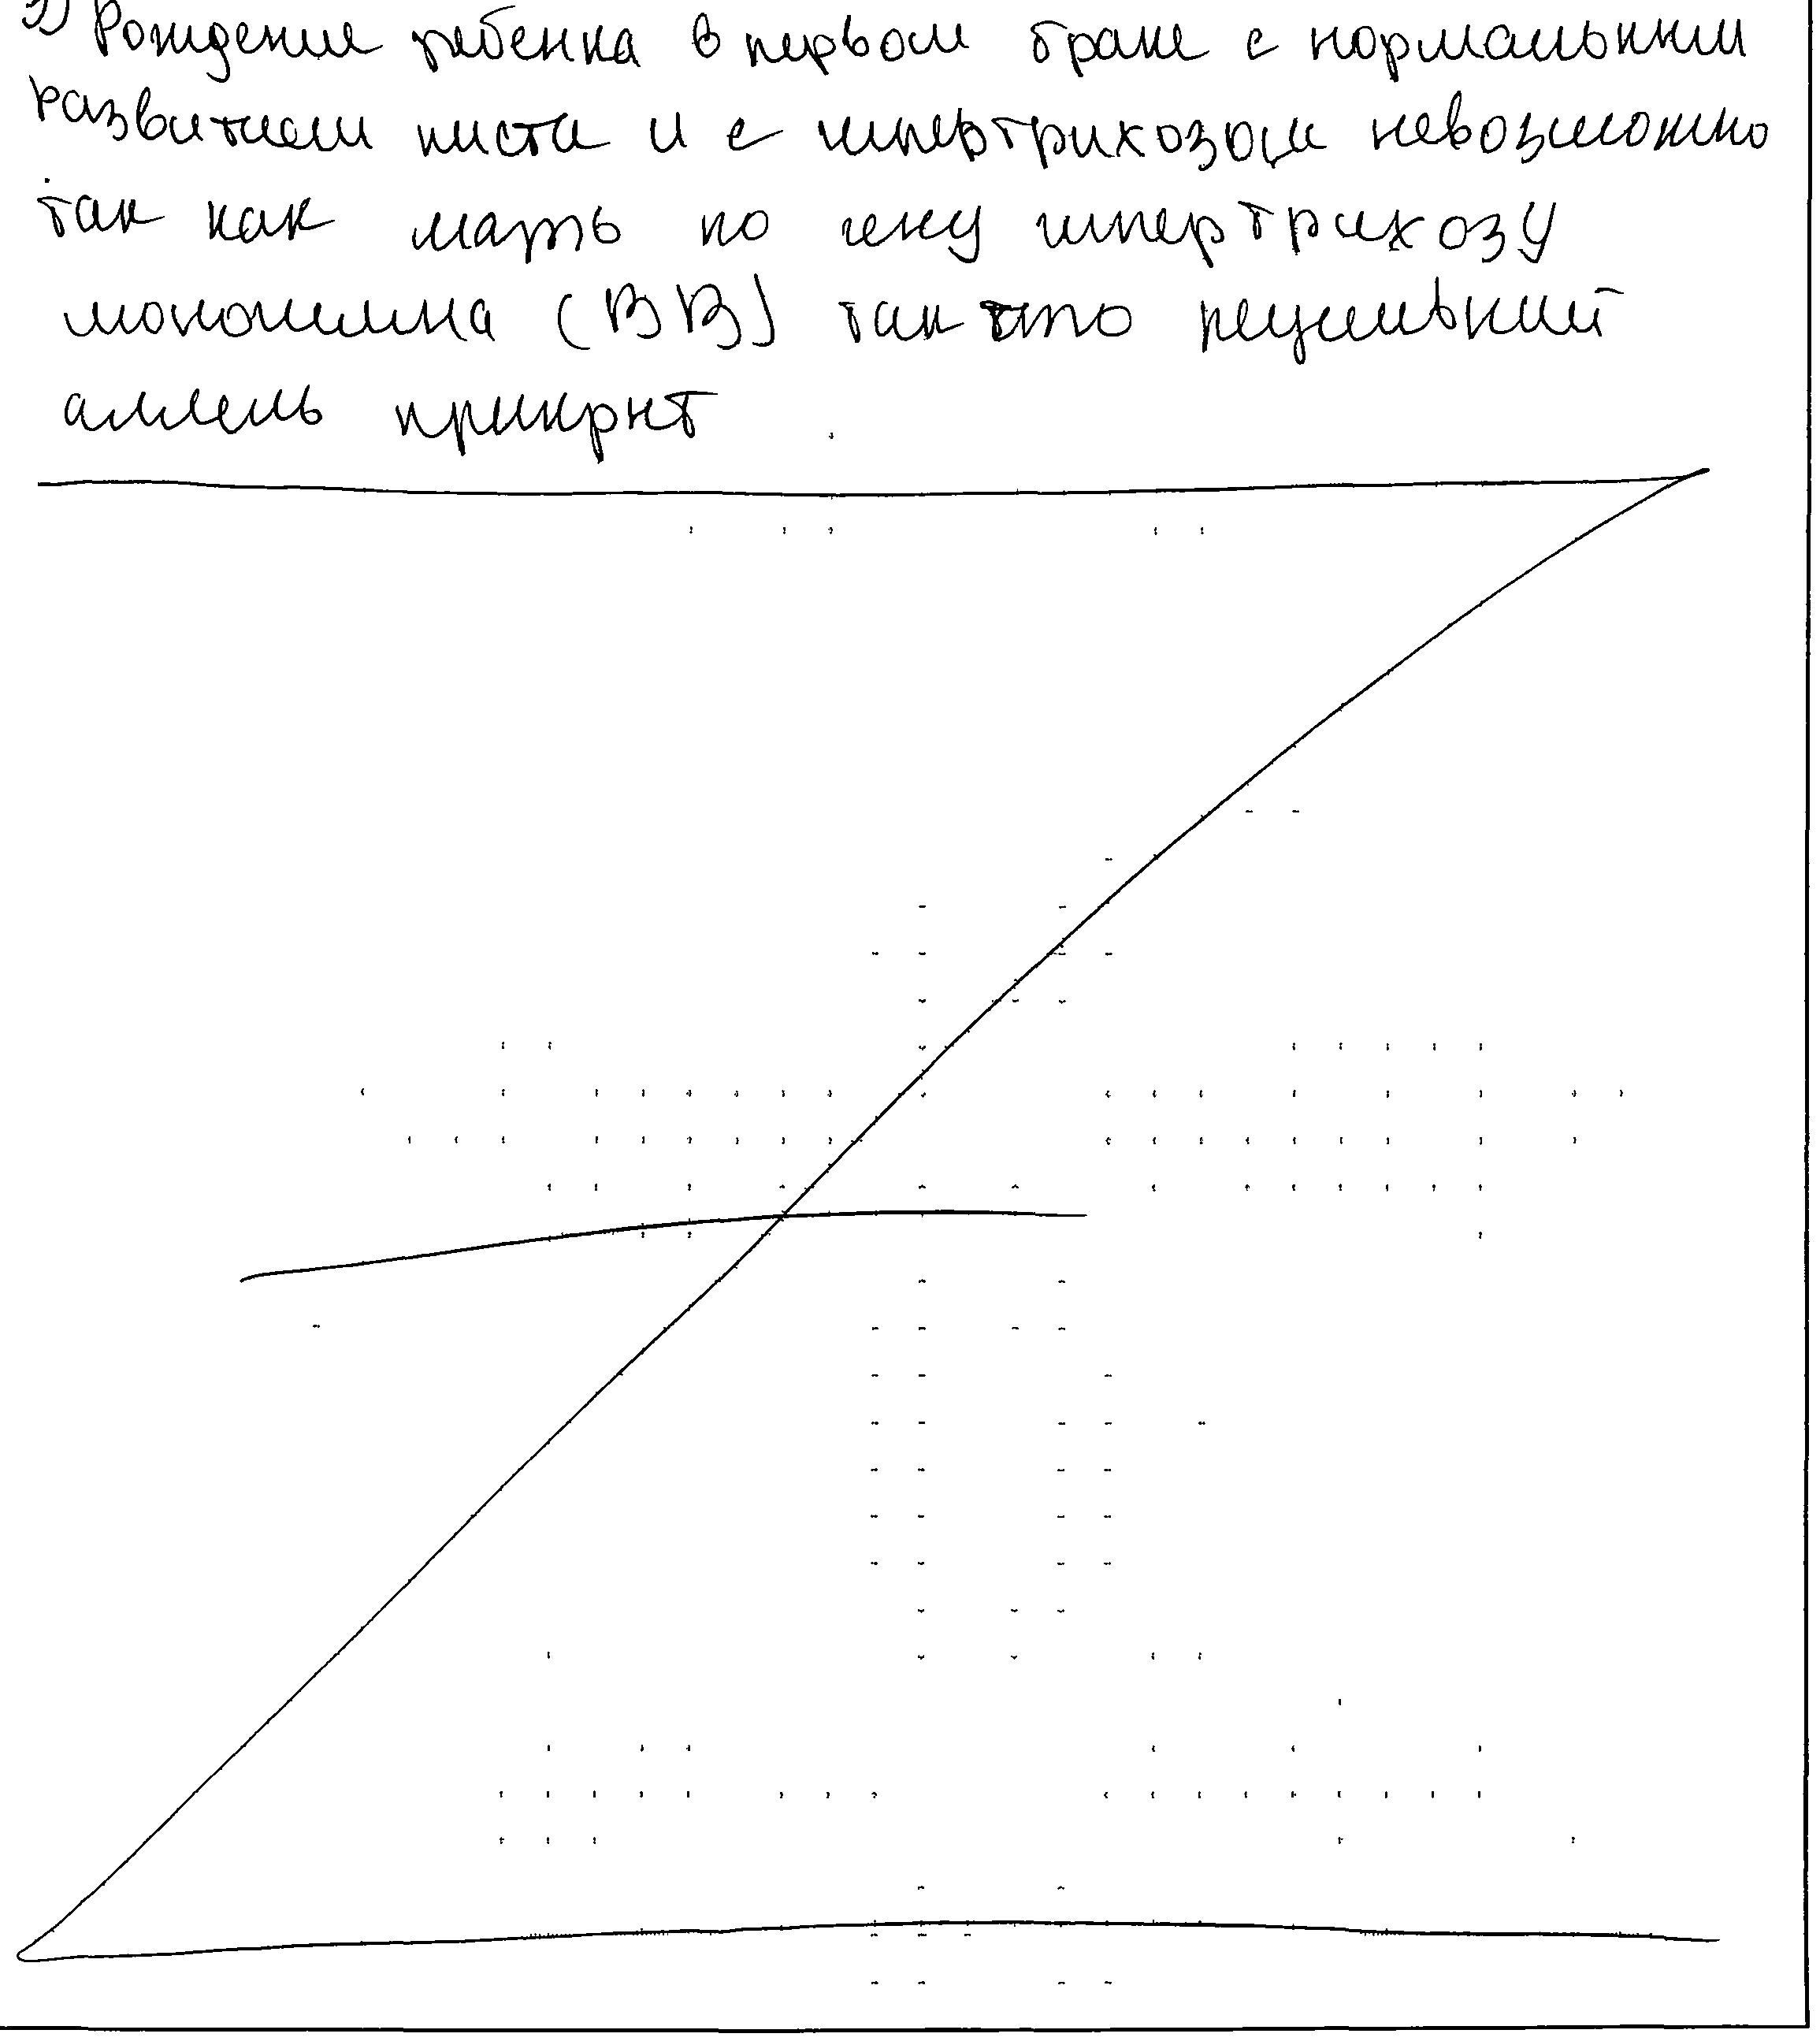 3) Рождение ребенка в первом браке с нормальным
развитием кисти и с гипертрихозом невозможно
так как мать по гену гипертрихозу
моногамна (BB) так что рецесивний
аллель прикрыт